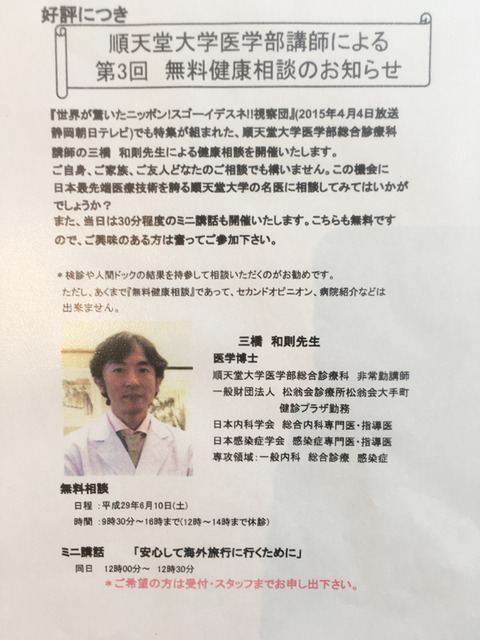 好評につき
順天堂大学医学部講師による
第3回 無料健康相談のお知らせ
『世界が驚いたニッポン!スゴーイデスネ!!視察団』(2015年4月4日放送
静岡朝日テレビ)でも特集が組まれた、順天堂大学医学部総合診療科
講師の三橋 和則先生による健康相談を開催いたします。
ご自身、ご家族、ご友人どなたのご相談でも構いません。この機会に
日本最先端医療技術を誇る順天堂大学の名医に相談してみてはいかが
でしょうか?
また、当日は30分程度のミニ講話も開催いたします。こちらも無料です
ので、ご興味のある方は奮ってご参加下さい。
*検診や人間ドックの結果を持参して相談いただくのがお勧めです。
ただし、あくまで『無料健康相談』であって、セカンドオピニオン、病院紹介などは
出来ません。
三橋 和則先生
医学博士
順天堂大学医学部総合診療科 非常勤講師
一般財団法人 松翁会診療所松翁会大手町
健診プラザ勤務
日本内科学会 総合内科専門医・指導医
日本感染症学会 感染症専門医・指導医
専攻領域:一般内科 総合診療 感染症
無料相談
日程 :平成29年6月10日(土)
時間 :9時30分~16時まで(12時~14時まで休診)
ミニ講話 「安心して海外旅行に行くために」
同日 12時00分~ 12時30分
*ご希望の方は受付・スタッフまでお申し出下さい。